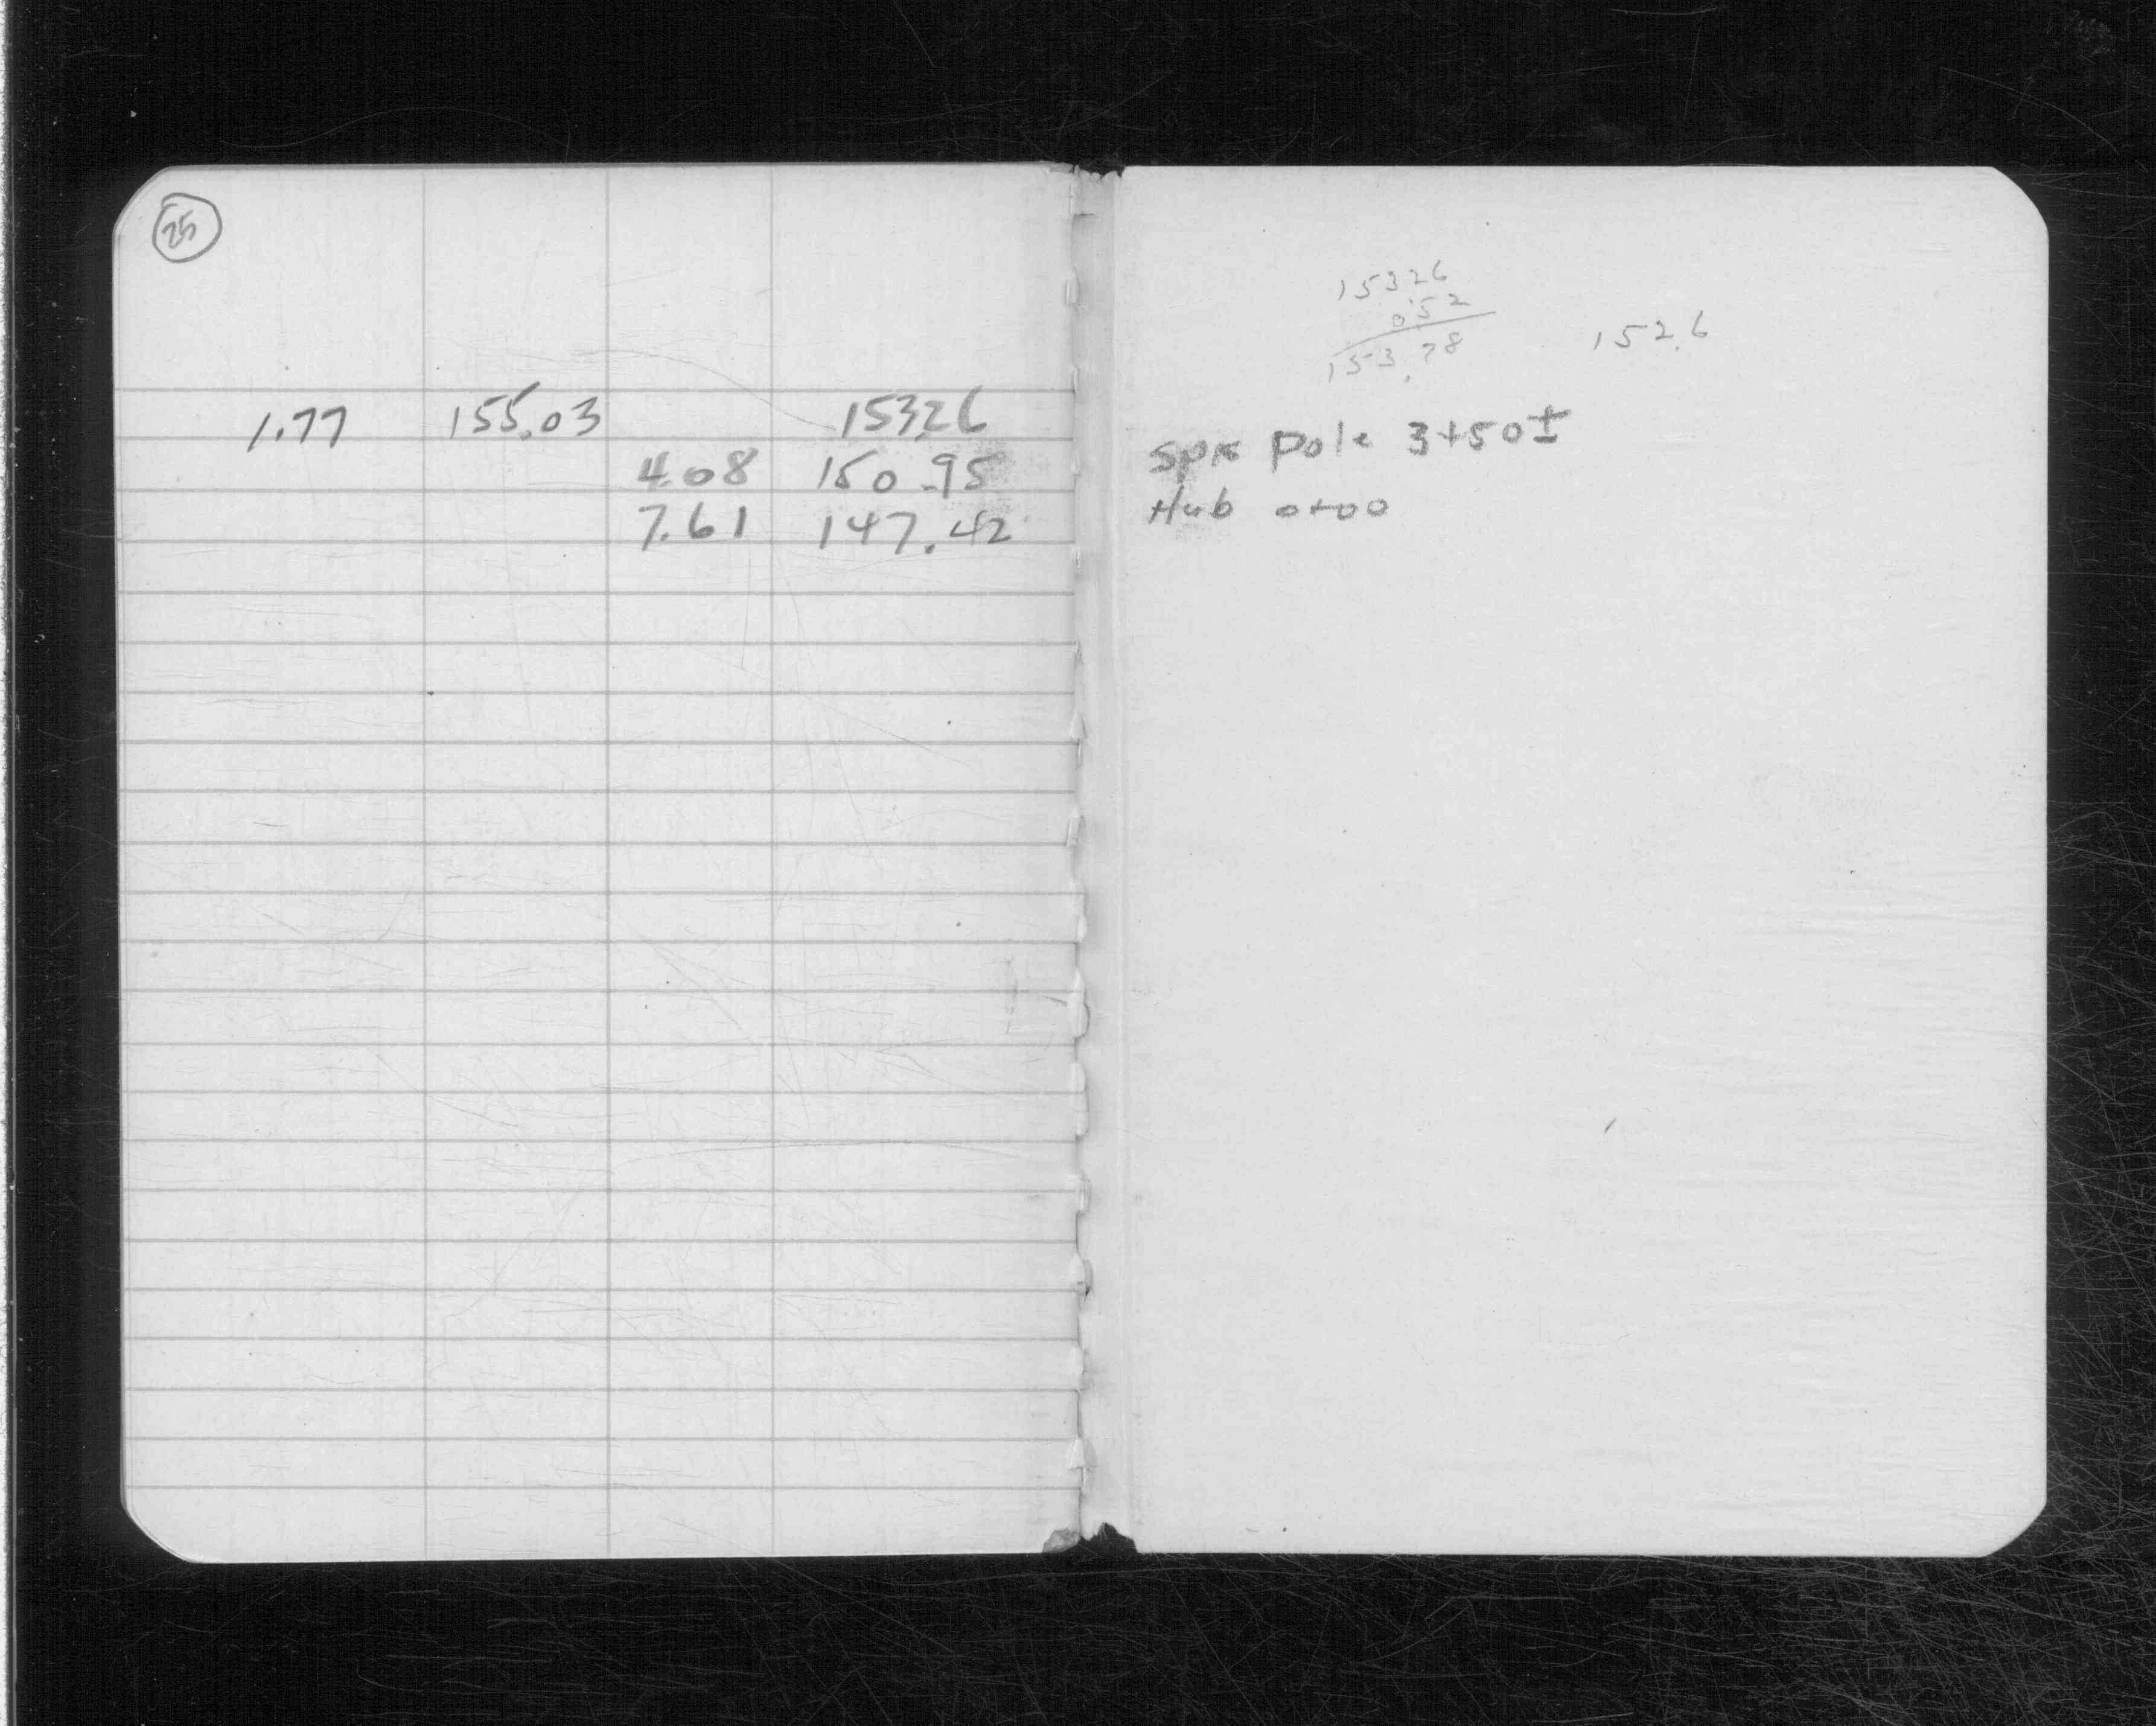 25
1.77 155.03 153.26
4.08 150.95
7.61 147.42
153 26
0.52
153.78
152.6
spk pole 3+50±
Hub 0+00